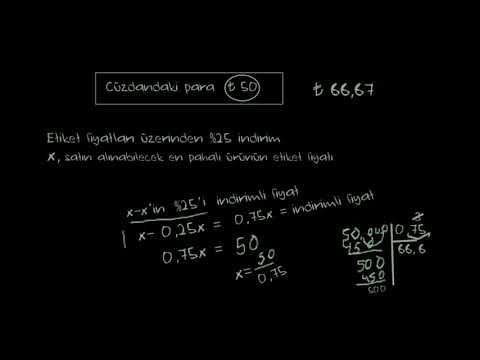 Cüzdandaki para ₺ 50
₺ 66,67
Etiket fiyatları üzerinden %25 indirim
x, satın alınabilecek en pahalı ürünün etiket fiyatı
x-x'in %25'i indirimli fiyat
1x - 0,25x = 0,75x = indirimli fiyat
0,75x = 50
x = 50/0,75
50,000 0,75
450 66,6
500
450
500